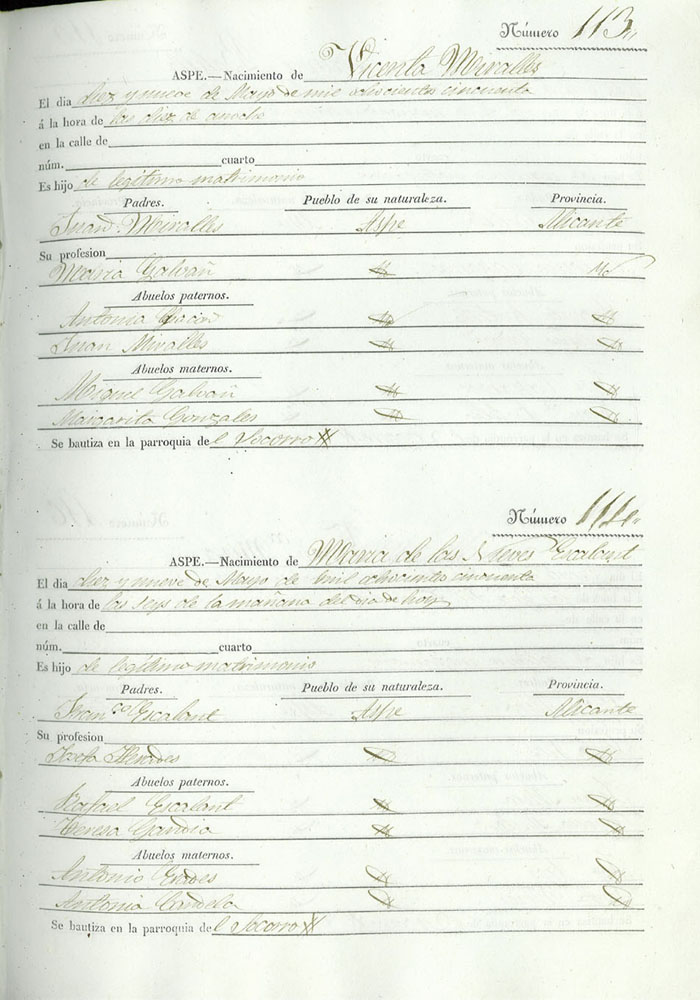 Número 113
ASPE.—Nacimiento de Vicenta Miralles
El dia diez y nueve de Mayo de mil ochocientos cincuenta
á la hora de las diez de anoche
en la calle de
núm. cuarto
Es hijo de legitimo matrimonio
Padres. Pueblo de su naturaleza. Provincia.
Miralles Aspe Alicante
Su profesion
Maria Galvañ
Abuelos paternos.
Antonia
Juan Miralles
Abuelos maternos.
Miguel Galvañ
Margarita Gonzales
Se bautiza en la parroquia del Socorro
Número 114
ASPE.—Nacimiento de Maria de las Nieves Escalant
El dia diez y nueve de Mayo de mil ochocientos cincuenta
á la hora de las seys de la mañana del dia de hoy
en la calle de
núm. cuarto
Es hijo de legitimo matrimonio
Padres. Pueblo de su naturaleza. Provincia.
Franco Escalant Aspe Alicante
Su profesion
Josefa
Abuelos paternos.
Rafael Escalant
Teresa
Abuelos maternos.
Antonio
Antonia
Se bautiza en la parroquia del Socorro